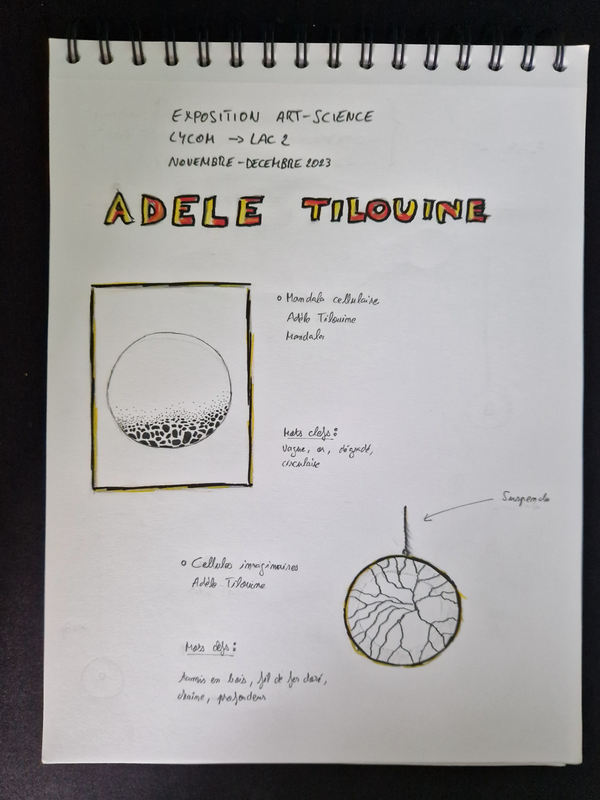 EXPOSITION ART-SCIENCE
LYCOM → LAC 2
NOVEMBRE-DECEMBRE 2023
ADELE TILOUINE
Mandala cellulaire
Adèle Tilouine
Mandala
Mots clefs :
vague, or, dégradé,
circulaire
Suspendu
Cellules imaginaires
Adèle Tilouine
Mots clefs :
tamis en bois, fil de fer doré,
chaîne, profondeur